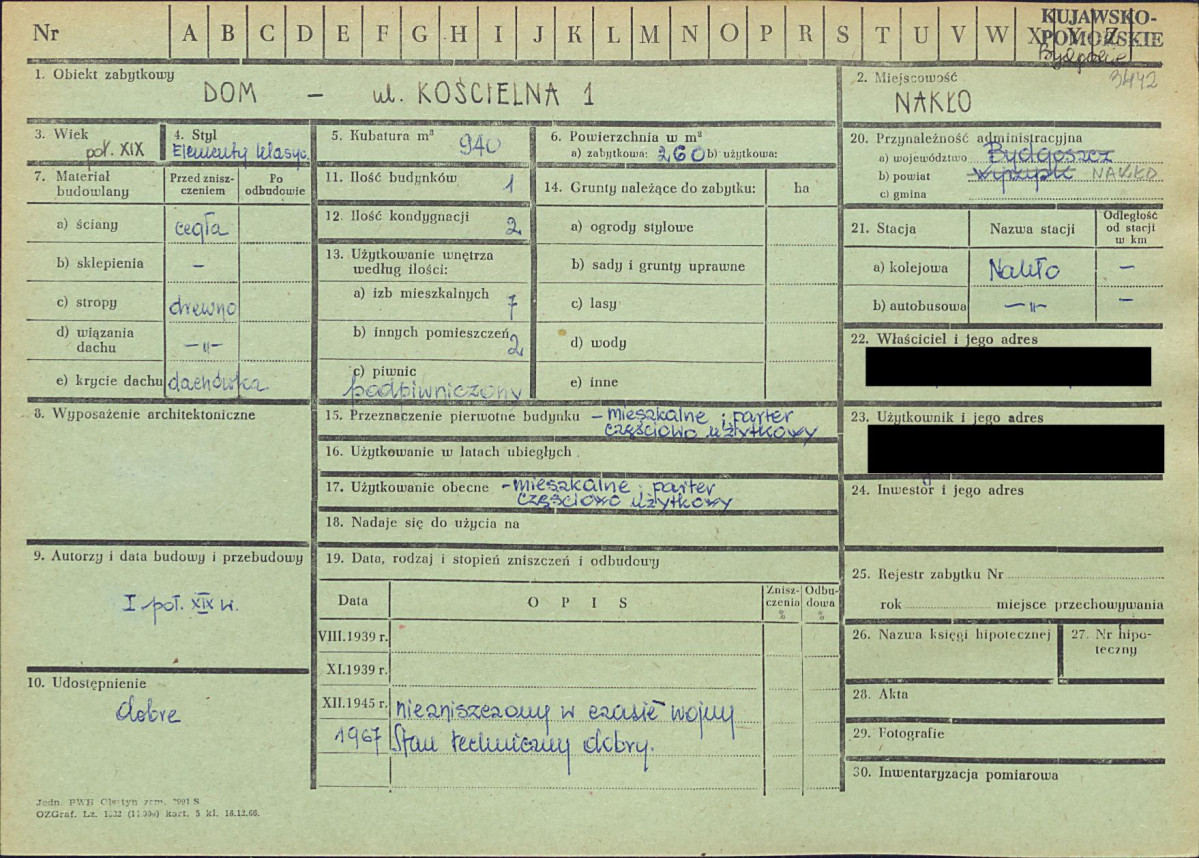 Nr A B C D E F G H I J K L M N O P R S T U V W X Y Z
KUJAWSKO-
POMORSKIE
3442
1. Obiekt zabytkowy
DOM – ul. KOŚCIELNA 1
2. Miejscowość
NAKŁO
3. Wiek
poł. XIX
4. Styl
Elementy klasyc.
5. Kubatura m³ 940
6. Powierzchnia w m²
a) zabytkowa: 260 b) użytkowa:
7. Materiał budowlany
Przed znisz-
czeniem
Po
odbudowie
a) ściany cegła
b) sklepienia –
c) stropy drewno
d) wiązania
dachu –"–
e) krycie dachu dachówka.
8. Wyposażenie architektoniczne
9. Autorzy i data budowy i przebudowy
I poł. XIX w.
10. Udostępnienie
dobre
11. Ilość budynków 1
12. Ilość kondygnacji 2
13. Użytkowanie wnętrza
według ilości:
a) izb mieszkalnych 7
b) innych pomieszczeń 2
c) piwnic
podpiwniczony
14. Grunty należące do zabytku: ha
a) ogrody stylowe
b) sady i grunty uprawne
c) lasy
d) wody
e) inne
15. Przeznaczenie pierwotne budynku – mieszkalne; parter
częściowo użytkowy
16. Użytkowanie w latach ubiegłych
17. Użytkowanie obecne – mieszkalne; parter
częściowo użytkowy
18. Nadaje się do użycia na
19. Data, rodzaj i stopień zniszczeń i odbudowy
Data O P I S
Znisz-
czenia
%
Odbu-
dowa
%
VIII.1939 r.
XI.1939 r.
XII.1945 r. niezniszczony w czasie wojny
1967 Stan techniczny dobry.
20. Przynależność administracyjna
a) województwo Bydgoszcz
b) powiat Wyrzysk NAKŁO
c) gmina
21. Stacja Nazwa stacji
Odległość
od stacji
w km
a) kolejowa Nakło –
b) autobusowa –"– –
22. Właściciel i jego adres
23. Użytkownik i jego adres
24. Inwestor i jego adres
25. Rejestr zabytku Nr
rok miejsce przechowywania
26. Nazwa księgi hipotecznej
27. Nr hipo-
teczny
28. Akta
29. Fotografie
30. Inwentaryzacja pomiarowa
Jedn. PWH Olsztyn zam. S
OZGraf. Lz. kart. 5 kl. 16.12.66.